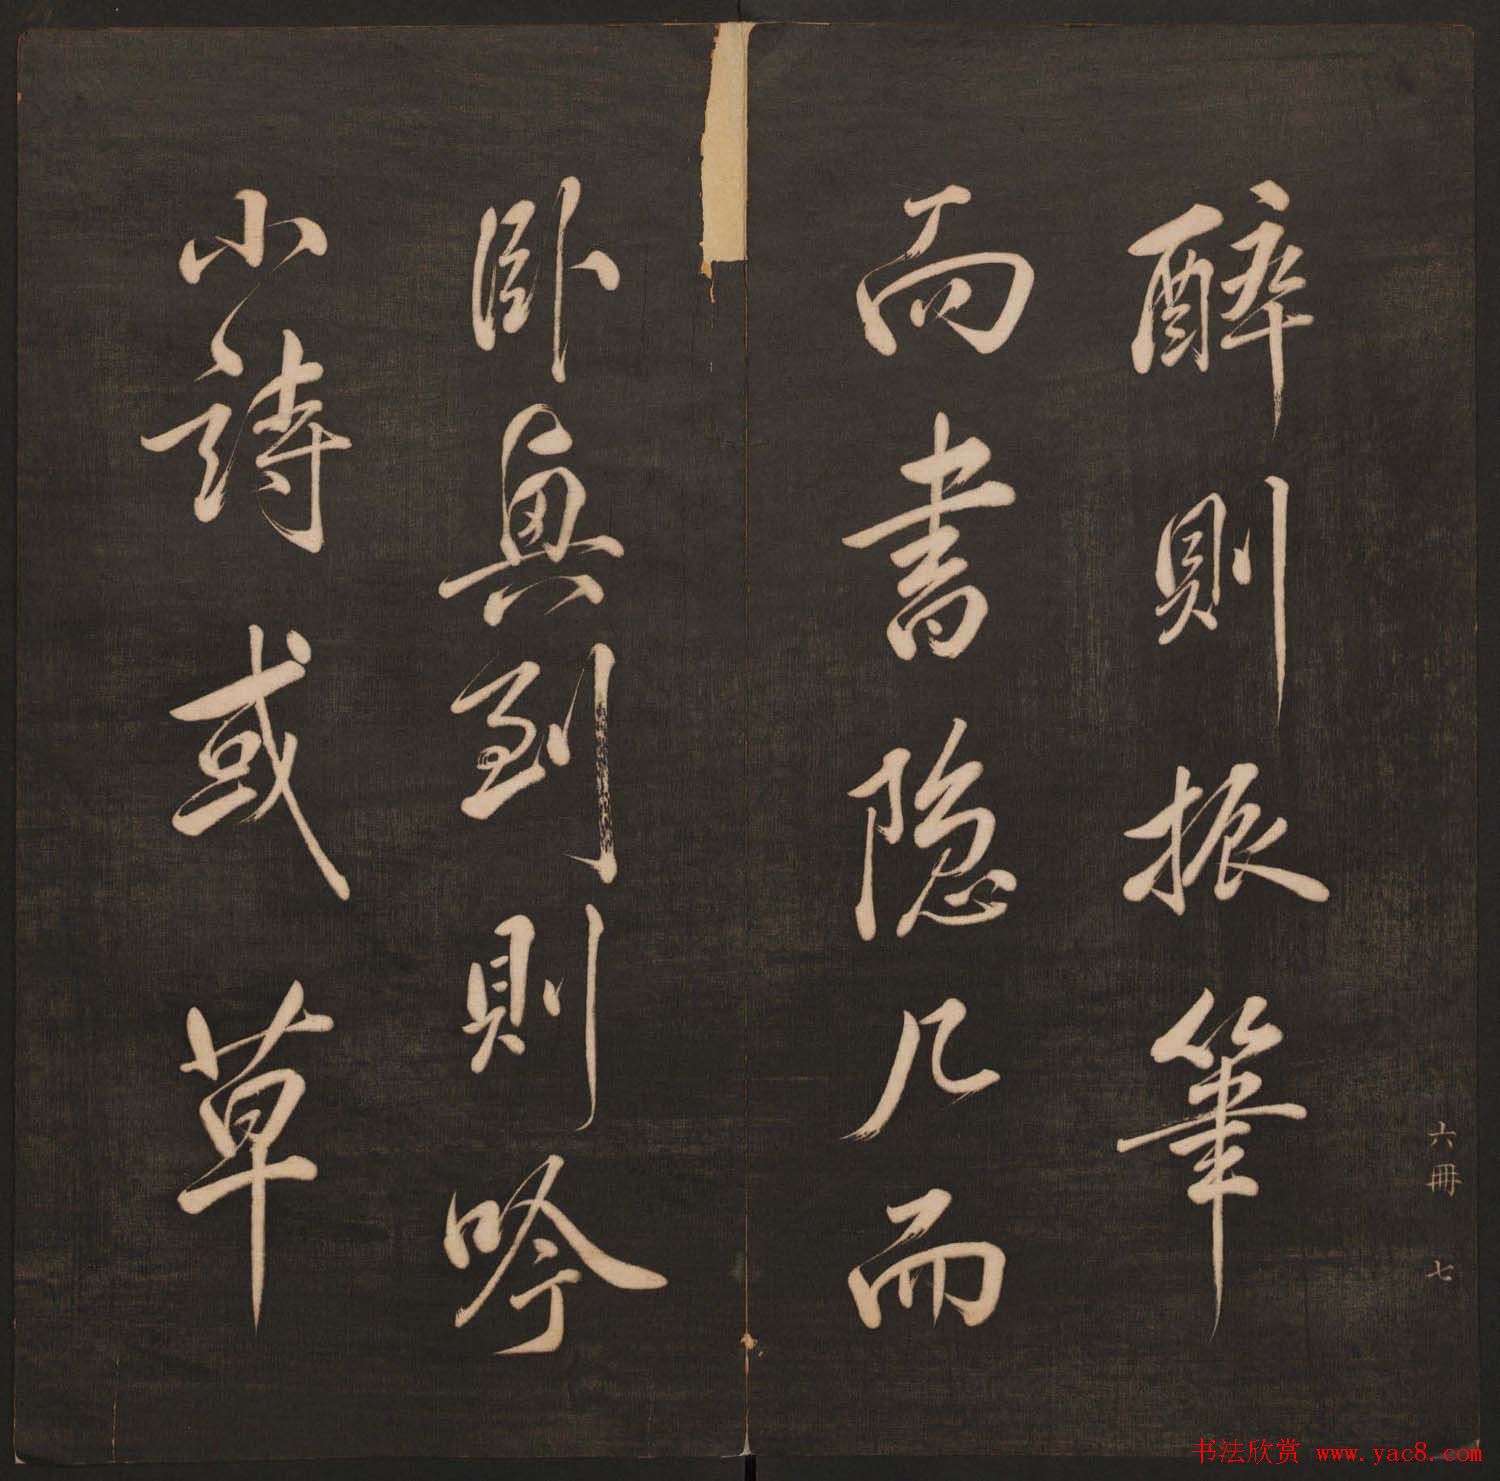 醉則振筆
而書隐几而
卧興到則吟
小詩或草
六冊 七
书法欣赏 www.yac8.com